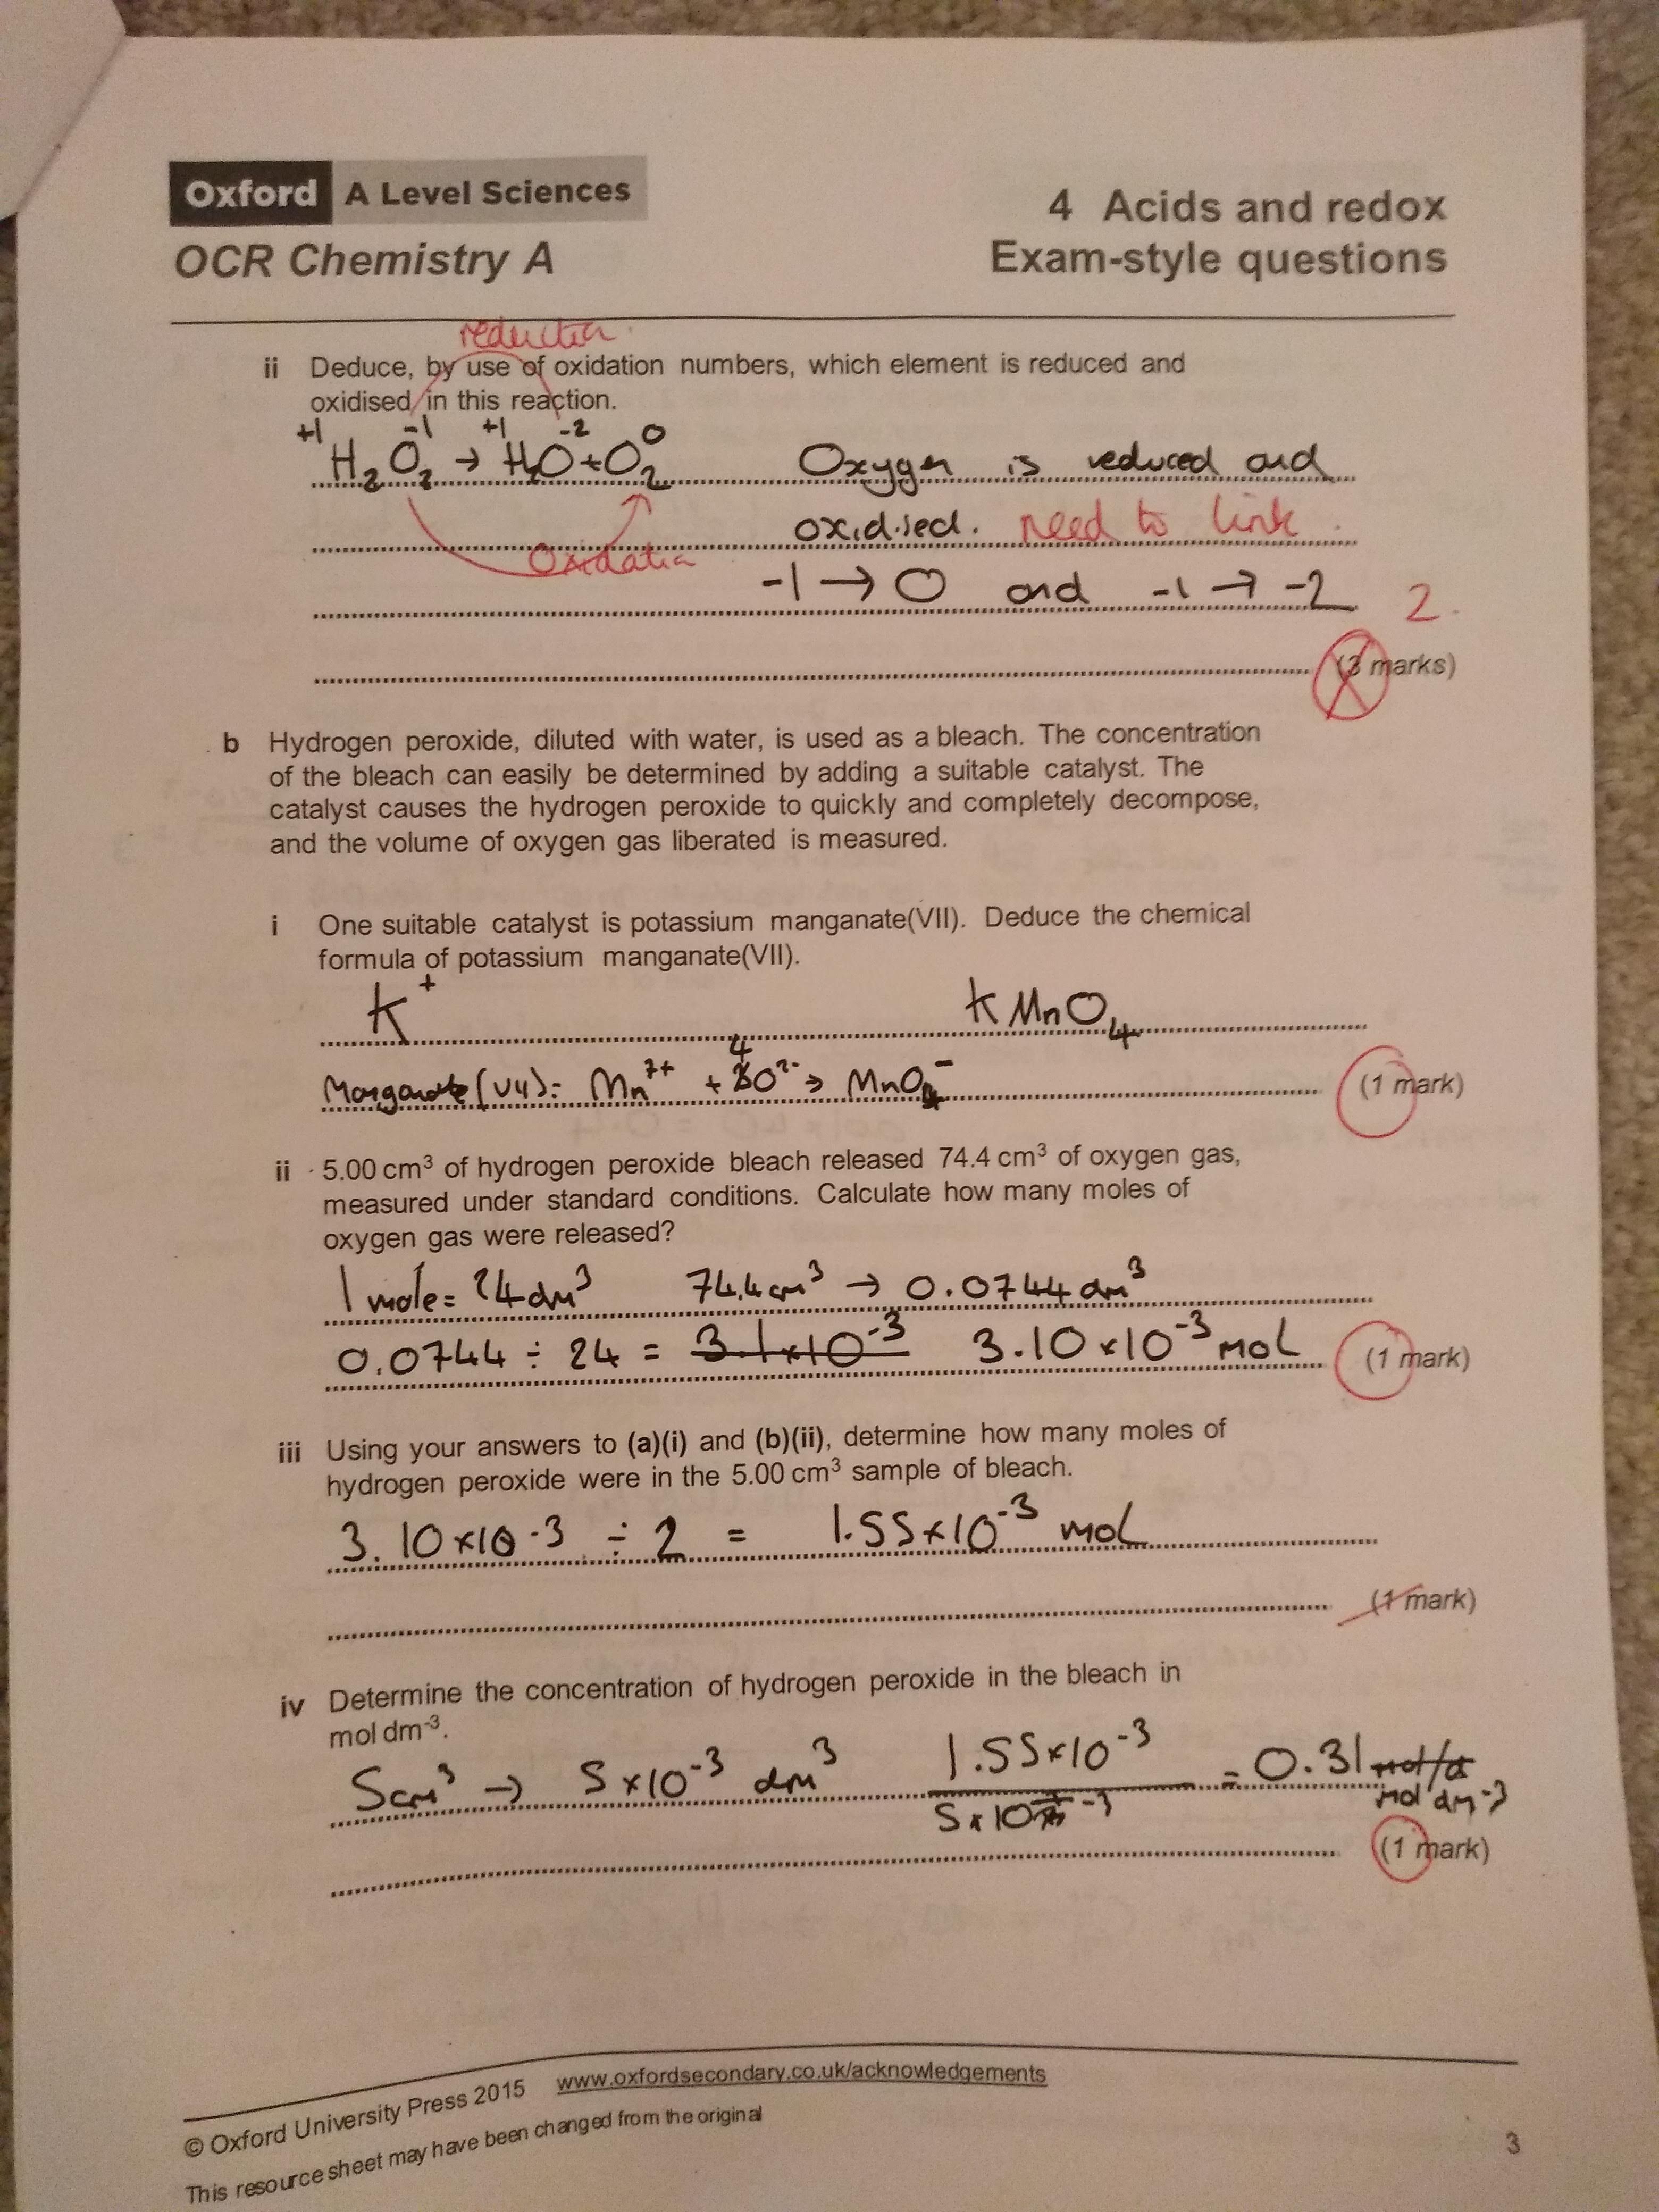 Oxford A Level Sciences
OCR Chemistry A
4 Acids and redox
Exam-style questions
reduction.
ii Deduce, by use of oxidation numbers, which element is reduced and
oxidised in this reaction.
+1 -1 +1 -2 0
H₂O₂ → H₂O + O₂ Oxygen is reduced and
oxidised. need to link.
Oxidation
-1 → 0 and -1 → -2 2.
(3 marks)
b Hydrogen peroxide, diluted with water, is used as a bleach. The concentration
of the bleach can easily be determined by adding a suitable catalyst. The
catalyst causes the hydrogen peroxide to quickly and completely decompose,
and the volume of oxygen gas liberated is measured.
i One suitable catalyst is potassium manganate(VII). Deduce the chemical
formula of potassium manganate(VII).
K⁺ KMnO₄
Manganate(VII): Mn⁷⁺ + 4O²⁻ → MnO₄⁻
(1 mark)
ii 5.00 cm³ of hydrogen peroxide bleach released 74.4 cm³ of oxygen gas,
measured under standard conditions. Calculate how many moles of
oxygen gas were released?
1 mole = 24dm³ 74.4cm³ → 0.0744dm³
0.0744 ÷ 24 = 3.1×10⁻³ 3.10×10⁻³ mol (1 mark)
iii Using your answers to (a)(i) and (b)(ii), determine how many moles of
hydrogen peroxide were in the 5.00 cm³ sample of bleach.
3.10×10⁻³ ÷ 2 = 1.55×10⁻³ mol
(1 mark)
iv Determine the concentration of hydrogen peroxide in the bleach in
mol dm⁻³.
1.55×10⁻³
5cm³ → 5×10⁻³ dm³ = 0.31 mol/d
5×10⁻³ mol dm⁻³
(1 mark)
© Oxford University Press 2015 www.oxfordsecondary.co.uk/acknowledgements
This resource sheet may have been changed from the original
3